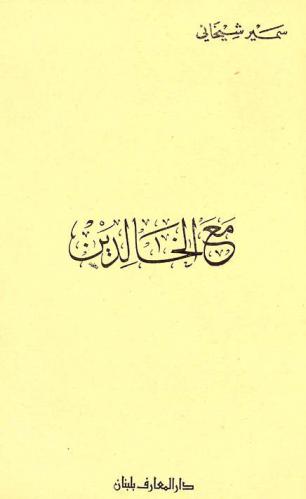 سمير شيخاني
مع الخالدين
دار المعارف بلبنان